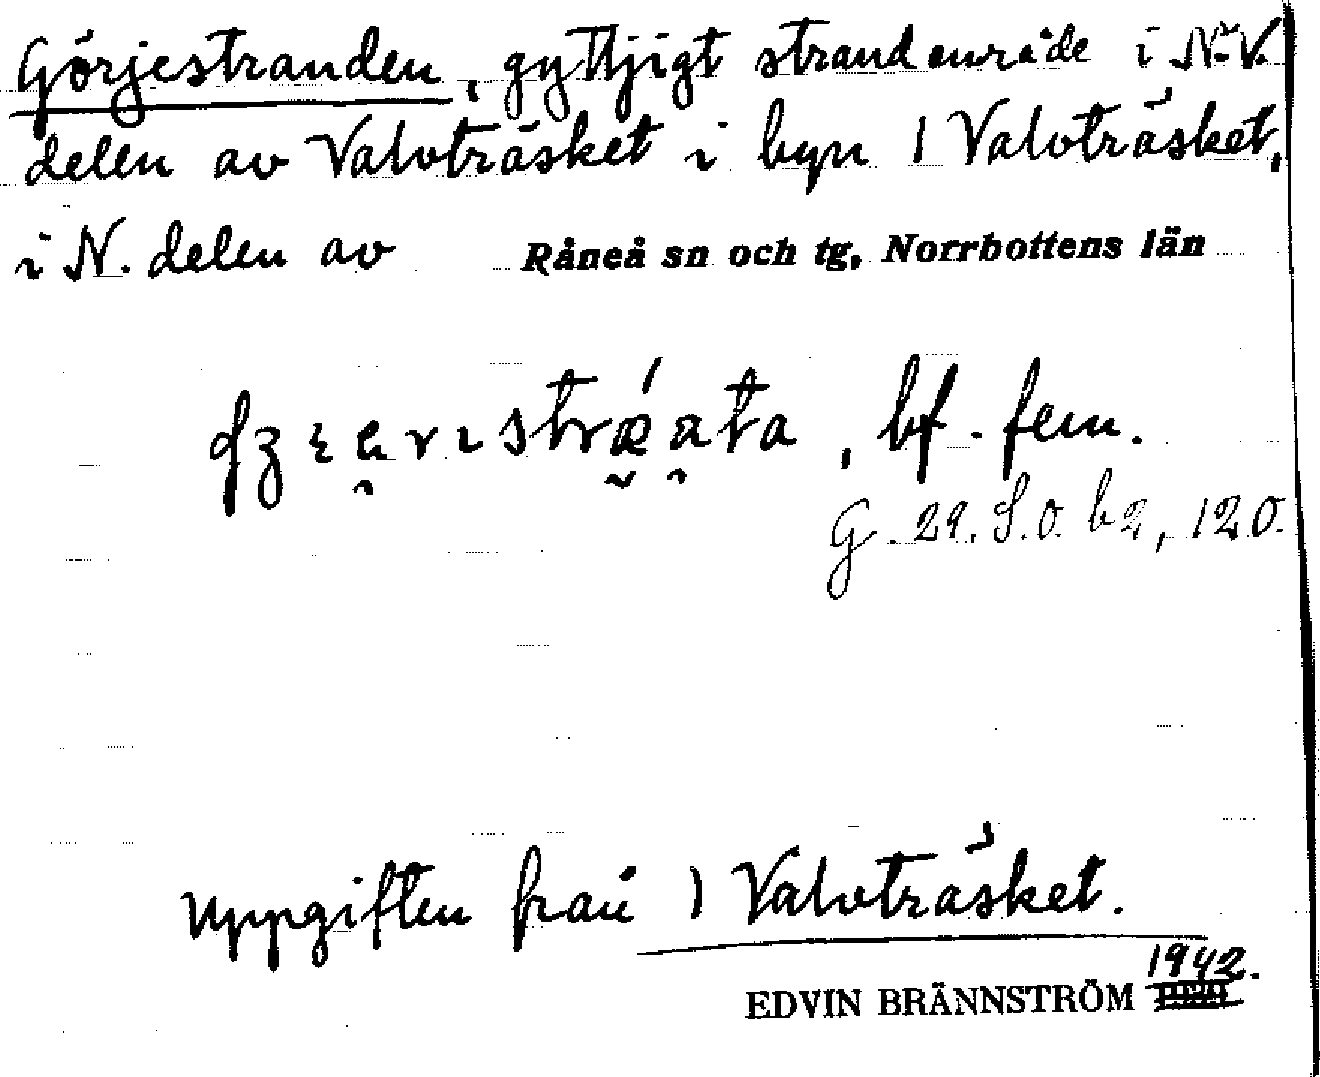 Görjestranden, gyttjigt strandområde i N.V.
delen av Valvträsket i byn 1 Valvträsket,
i N. delen av Råneå sn och tg, Norrbottens län
bf. fem.
G. 29. S.O. b2, 120.
Uppgiften från 1 Valvträsket.
1942.
EDVIN BRÄNNSTRÖM